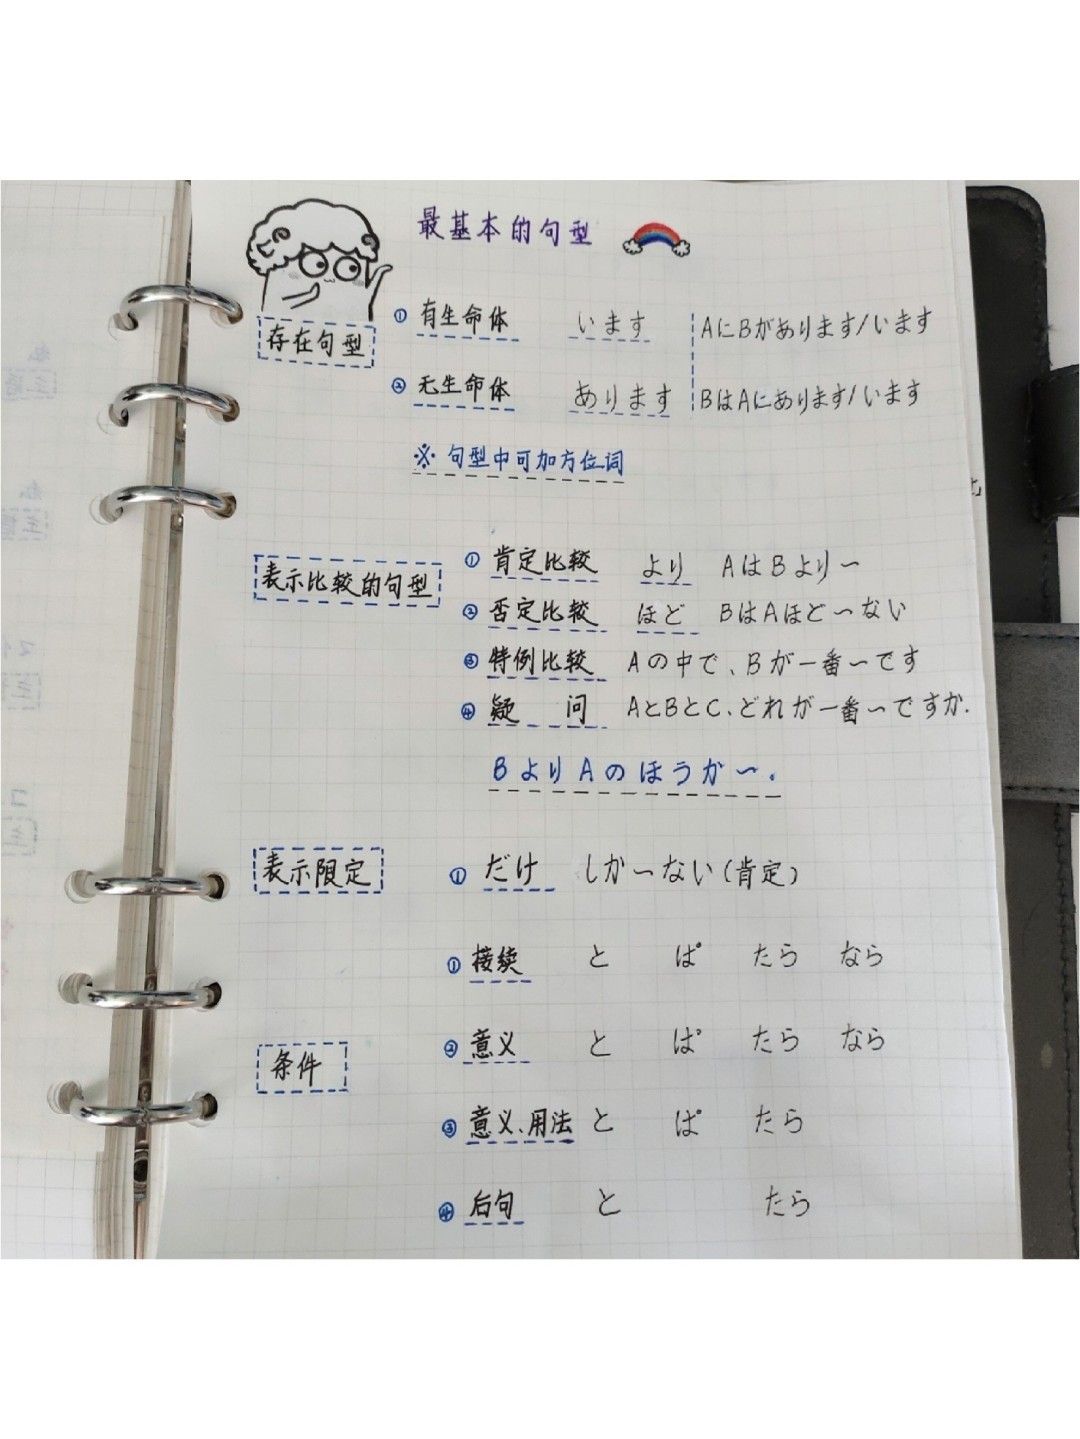 最基本的句型
存在句型
① 有生命体 います AにBがあります/います
② 无生命体 あります BはAにあります/います
※ 句型中可加方位词
表示比较的句型
① 肯定比较 より AはBより〜
② 否定比较 ほど BはAほど〜ない
③ 特例比较 Aの中で、Bが一番〜です
④ 疑问 AとBとC、どれが一番〜ですか.
BよりAのほうが〜.
表示限定 ① だけ しか〜ない(肯定)
条件
① 接续 と ぱ たら なら
② 意义 と ぱ たら なら
③ 意义、用法 と ぱ たら
④ 后句 と たら